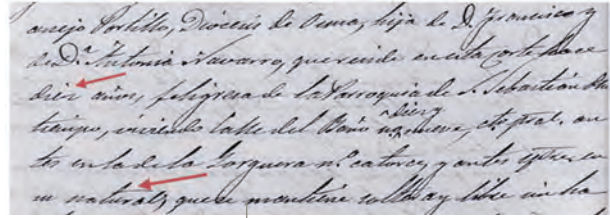 anejo Portillo, Diócesis de Osma, hija de D. Francisco y
de D.ª Antonia Navarro, que reside en esta corte hace
diez años, feligresa de la Parroquia de S. Sebastian
tiempo, viviendo calle del Baño n.º diez y nueve, cto pral. an
tes en la de la Gorguera n.º catorce, y antes en
su natural, que se mantiene soltera y libre sin ha